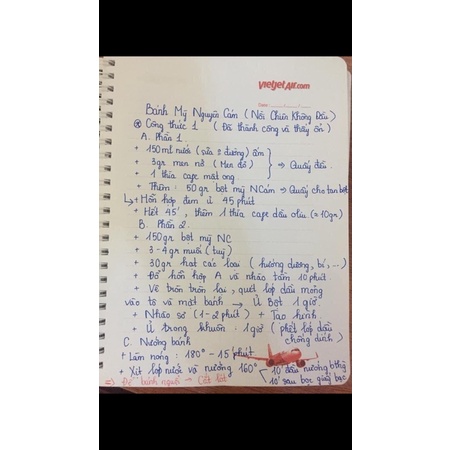 vietjetAir.com
Date:
Bánh Mỳ Nguyên Cám (Nồi Chiên Không Dầu)
⊛ Công thức 1 (Đã thành công và thấy ổn)
A. Phần 1
+ 150ml nước (sữa ± đường) ấm
+ 3gr men nở (Men đỏ) ⇒ Quấy đều.
+ 1 thìa cafe mật ong
+ Thêm : 50gr bột mỳ NCám → Quấy cho tan bột
↳ + Hỗn hợp đem ủ 45 phút
+ Hết 45', thêm 1 thìa cafe dầu oliu (= 10gr)
B. Phần 2.
+ 150gr bột mỳ NC
+ 3-4gr muối (tuỳ)
+ 30gr hạt các loại (hướng dương, bí, ...)
+ Đổ hỗn hợp A và nhào tầm 10 phút.
+ Vê tròn trộn lại, quét lớp dầu mỏng
vào tô và mặt bánh → Ủ Bột 1 giờ.
+ Nhào sơ (1-2 phút) + Tạo hình
+ Ủ trong khuôn : 1 giờ (phết lớp dầu
chống dính)
C. Nướng bánh
+ Làm nóng : 180° - 15 phút
+ Xịt lớp nước và nướng 160° 10' đầu nướng bthg
10' sau bọc giấy bạc
⇒ Để bánh nguội → Cắt lát